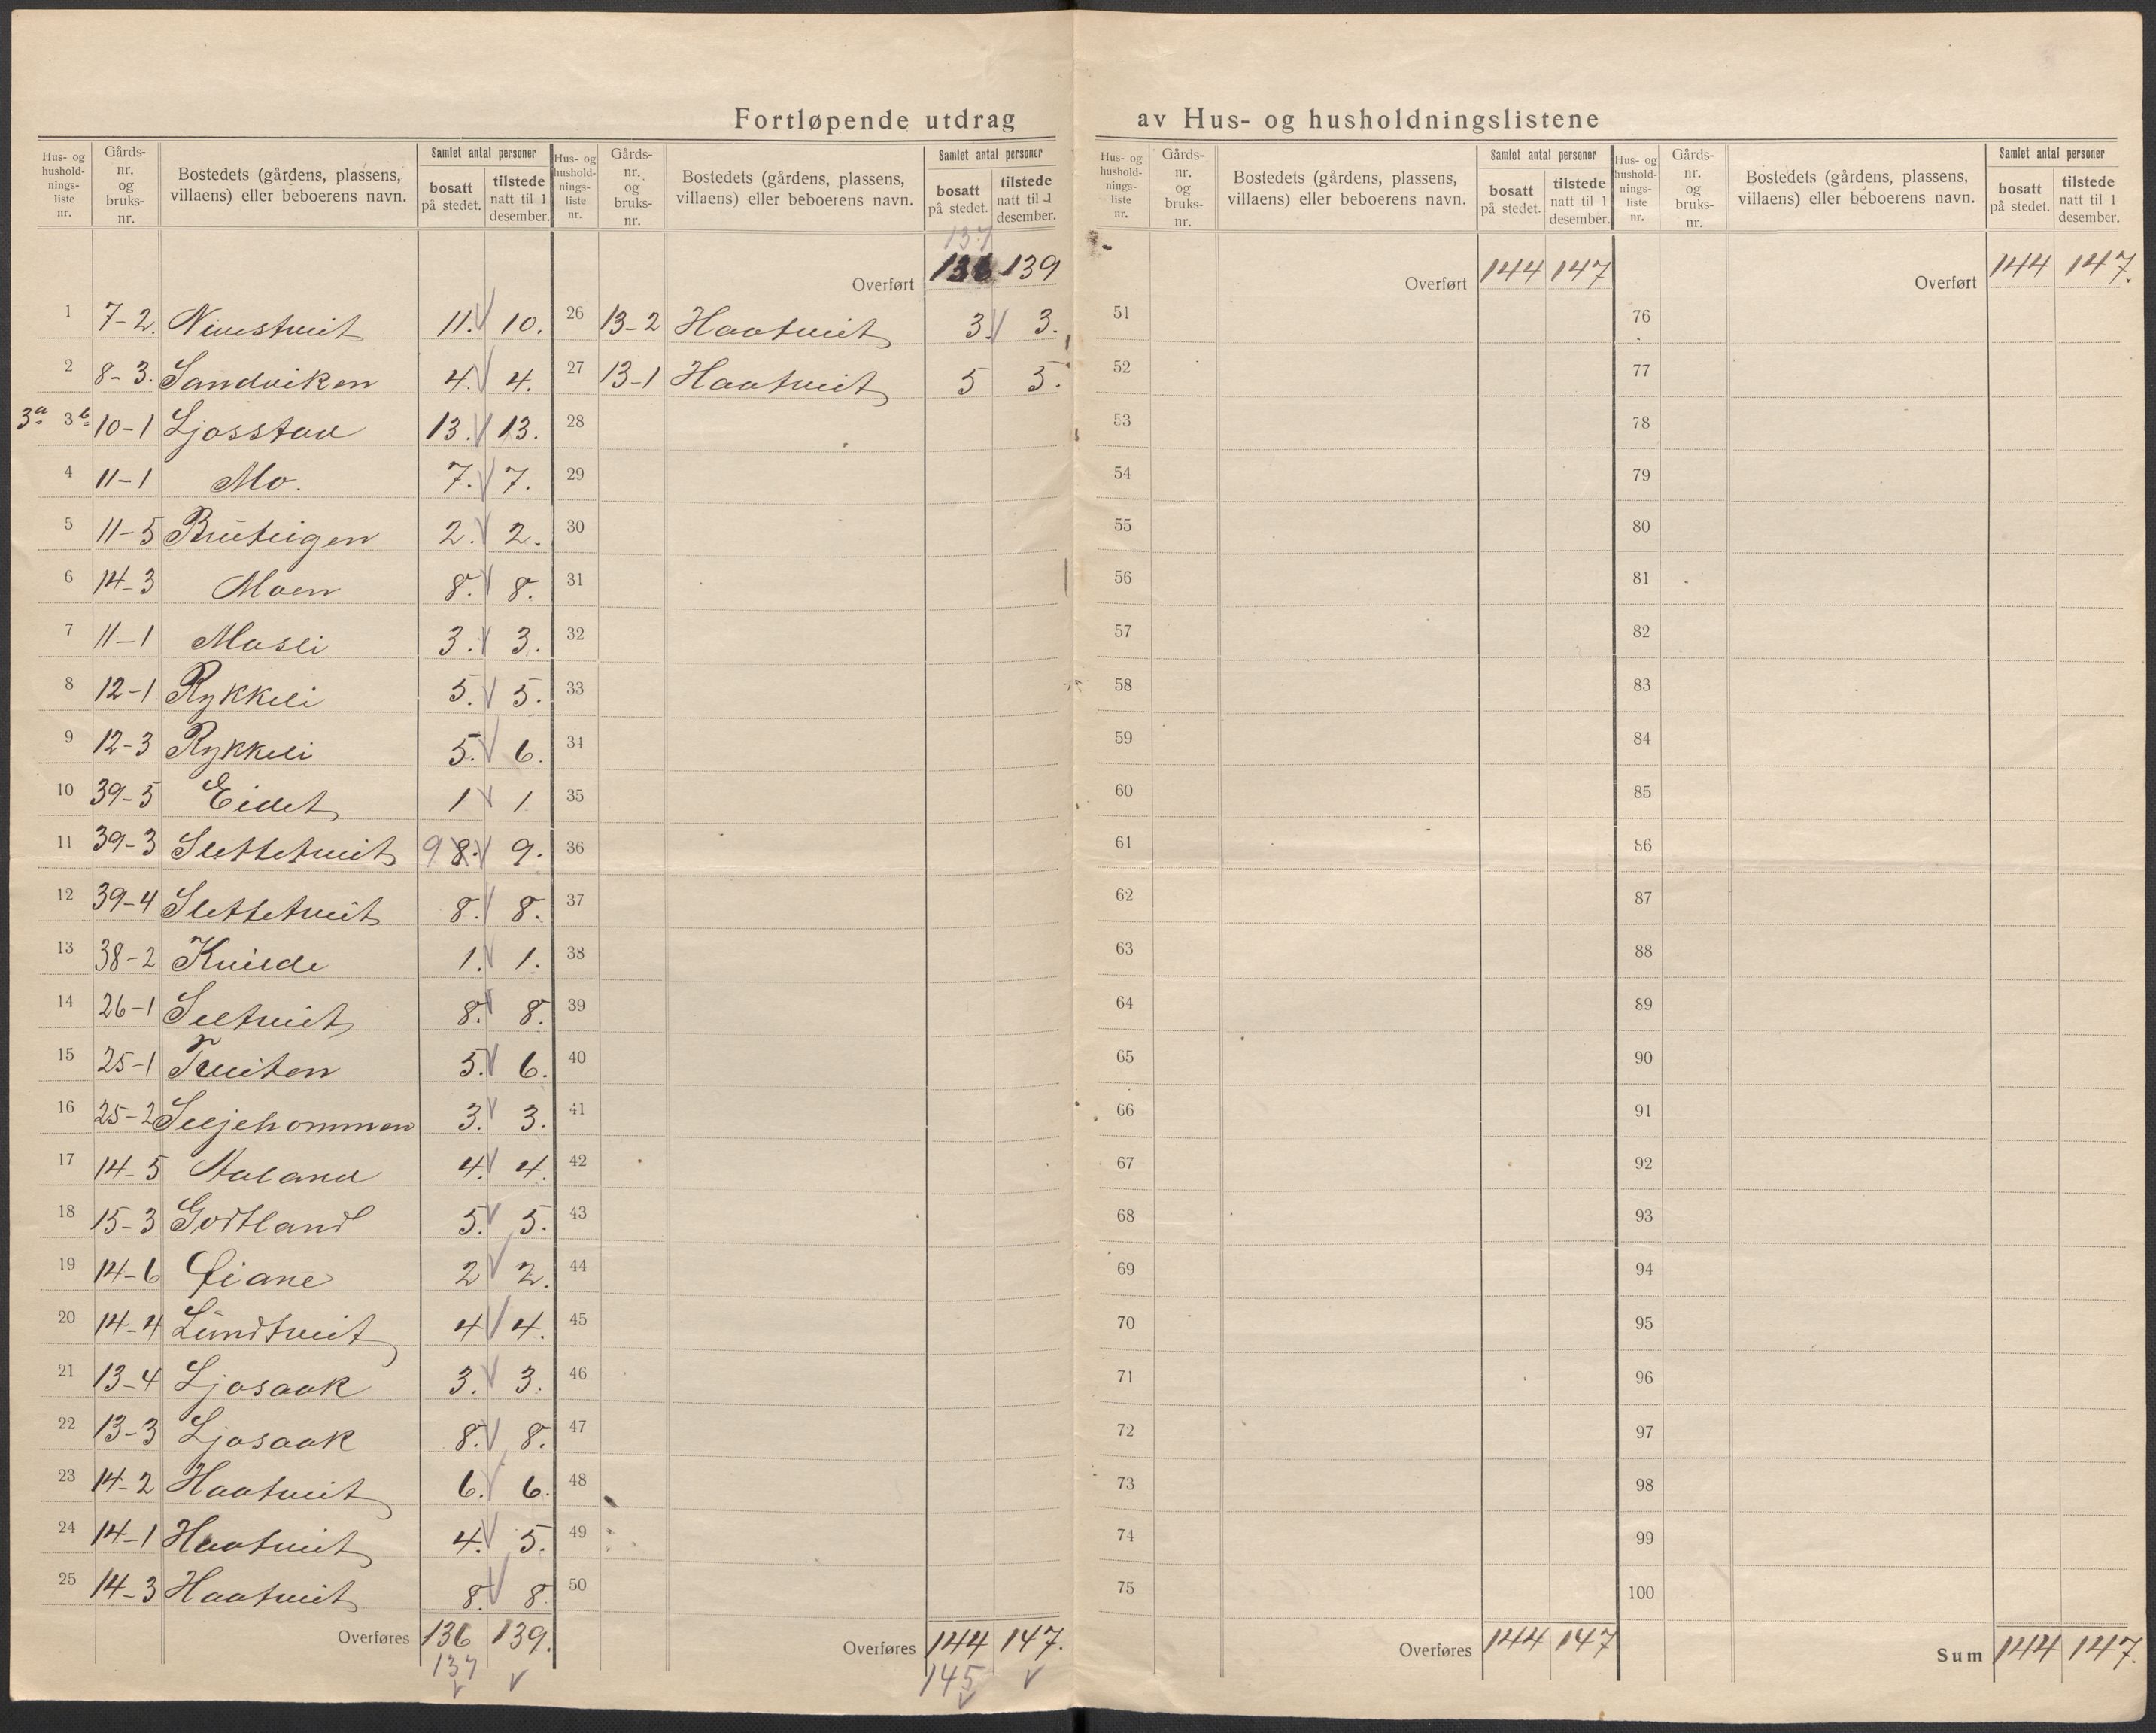 Fortløpende utdrag av Hus- og husholdningslistene
Hus- og husholdnings-liste nr. | Gårds-nr. og bruks-nr. | Bostedets (gårdens, plassens, villaens) eller beboerens navn. | Samlet antal personer | bosatt på stedet. | tilstede natt til 1 desember.
1 7-2. 11. 10.
2 8-3. Sandviken 4. 4.
3a 3b 10-1 Ljosstad 13. 13.
4 11-1 Mo. 7. 7.
5 11-5 2. 2.
6 14-3 Moen 8. 8.
7 11-1 Mosli 3. 3.
8 12-1 Rykkeli 5. 5.
9 12-3 Rykkeli 5. 6.
10 39-5 Eidet 1 1
11 39-3 Slettetveit 9 8. 9.
12 39-4 Slettetveit 8. 8.
13 38-2 Kvilde 1. 1.
14 26-1 Seltveit 8. 8.
15 25-1 Tveiten 5. 6.
16 25-2 Seljehommen 3. 3.
17 14-5 Aaland 4. 4.
18 15-3 Godtland 5. 5.
19 14-6 Liane 2 2.
20 14-4 Lundtveit 4 4.
21 13-4 Ljosaak 3. 3.
22 13-3 Ljosaak 8. 8.
23 14-2 Haatveit 6. 6.
24 14-1 Haatveit 4. 5.
25 14-3 Haatveit 8. 8
Overføres 136 139.
137
Hus- og husholdnings-liste nr. | Gårds-nr. og bruks-nr. | Bostedets (gårdens, plassens, villaens) eller beboerens navn. | Samlet antal personer | bosatt på stedet. | tilstede natt til 1 desember.
137
Overført 136 139
26 13-2 Haatveit 3. 3.
27 13-1 Haatveit 5 5.
28
29
30
31
32
33
34
35
36
37
38
39
40
41
42
43
44
45
46
47
48
49
50
Overføres 144 147.
145
Hus- og husholdnings-liste nr. | Gårds-nr. og bruks-nr. | Bostedets (gårdens, plassens, villaens) eller beboerens navn. | Samlet antal personer | bosatt på stedet. | tilstede natt til 1 desember.
Overført 144 147
51
52
53
54
55
56
57
58
59
60
61
62
63
64
65
66
67
68
69
70
71
72
73
74
75
Overføres 144 147
Hus- og husholdnings-liste nr. | Gårds-nr. og bruks-nr. | Bostedets (gårdens, plassens, villaens) eller beboerens navn. | Samlet antal personer | bosatt på stedet. | tilstede natt til 1 desember.
Overført 144 147.
76
77
78
79
80
81
82
83
84
85
86
87
88
89
90
91
92
93
94
95
96
97
98
99
100
Sum 144 147.